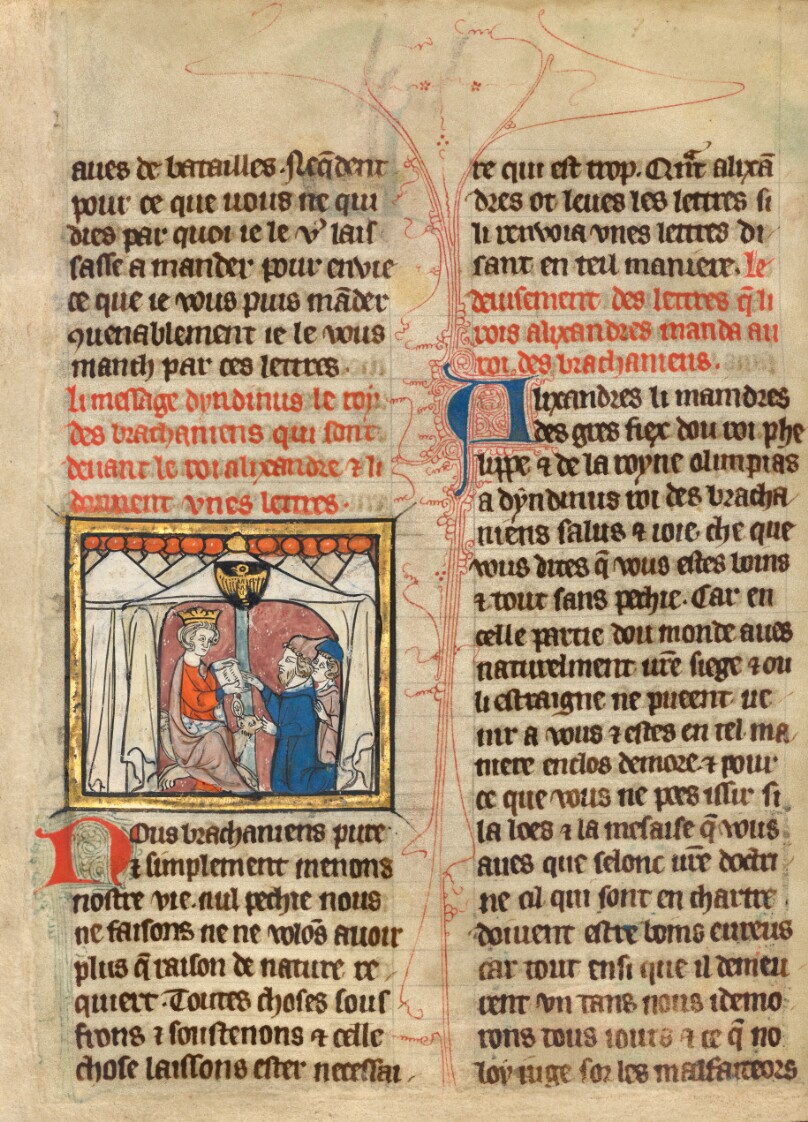 aues de batailles. Neq̄dent
pour ce que uous ne qui
dies par quoi ie le v9 lais
sasse a mander pour enuie
ce que ie vous puis mād̄er
9uenablement ie le vous
manch par ces lettres.
li message dyndinus le roy
des brachaniens qui sont
deuant le roi alixandre ⁊ li
donnent vnes lettres.
Nous brachaniens pure
⁊ simplement menons
nostre vie. nul pechie nous
ne faisons ne ne volōs auoir
plus q̄ raison de nature re
quiert. Toutes choses souf
frons ⁊ soustenons ⁊ celle
chose laissons ester necessai
re qui est trop. Qn̄t alixā
dres ot leues les lettres si
li renuoia vnes lettres di
sant en teil maniere. le
deuisement des lettres q̄ li
rois alixandres manda au
roi des brachaniens.
Alixandres li maindres
des gres fiex dou roi phe
lippe ⁊ de la royne olimpias
a dyndinus roi des bracha
niens salus ⁊ ioie. che que
vous dites q̄ vous estes boins
⁊ tout sans pechie. Car en
celle partie dou monde aues
naturelment ur̄e siege ⁊ ou
li estraigne ne pueent ue
nir a vous ⁊ estes en tel ma
niere enclos demore. ⁊ pour
ce que vous ne poes issir si
la loes ⁊ la mesaise q̄ vous
aues que selonc ur̄e doctri
ne cil qui sont en chartre
doiuent estre boins eureus
car tout ensi que il demeu
rent vn tans nous ⁊demo
rons tous iours ⁊ ce q̄ no
loy iuge sor les malfaiteors